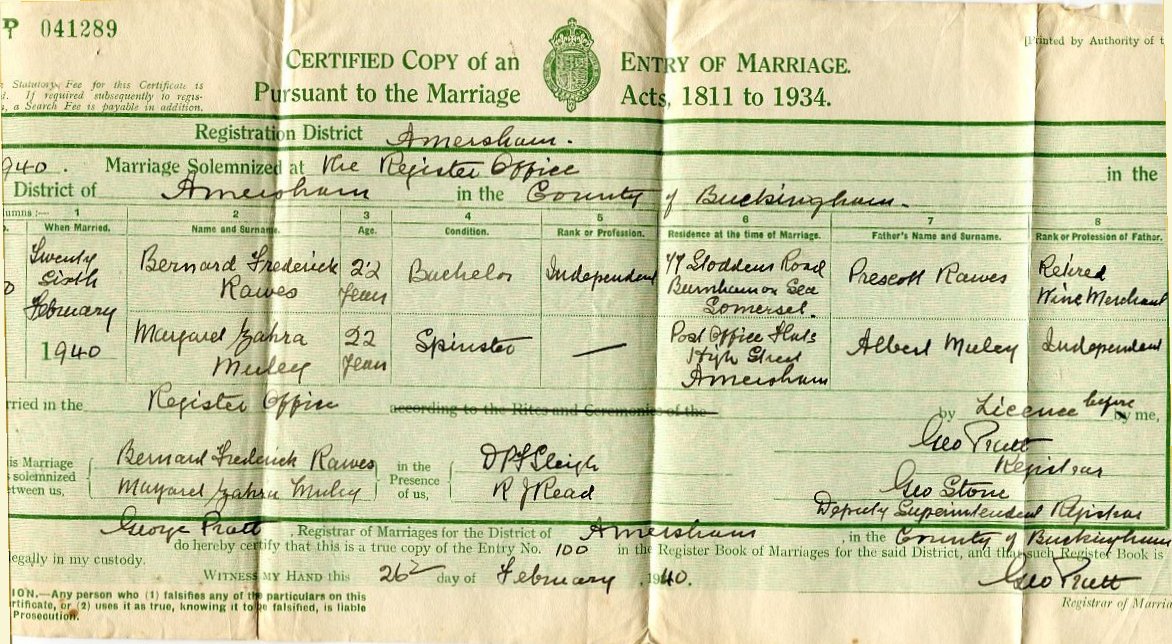 041289
[Printed by Authority of t
CERTIFIED COPY of an ENTRY OF MARRIAGE.
Pursuant to the Marriage Acts, 1811 to 1934.
Statutory Fee for this Certificate is
If required subsequently to regis-
a Search Fee is payable in addition.
Registration District Amersham.
940. Marriage Solemnized at The Register Office in the
District of Amersham in the County of Buckingham.
lumns :— 1 2 3 4 5 6 7 8
When Married. Name and Surname. Age. Condition. Rank or Profession. Residence at the time of Marriage. Father's Name and Surname. Rank or Profession of Father.
Twenty Sixth February 1940
Bernard Frederick Rawes
22 Years
Bachelor
Independent
Stoddens Road
Burnham on Sea
Somerset.
Prescott Rawes
Retired Wine Merchant
Margaret Zahra
22 Years
Spinster
—
Post Office Flats
High Street
Amersham
Albert
Independent
rried in the Register Office according to the Rites and Ceremonies of the by Licence before by me,
Geo Pratt
Registrar
is Marriage solemnized etween us,
Bernard Frederick Rawes
Margaret Zahra
in the Presence of us,
Sleigh
R J Read
Geo Stone
Deputy Superintendent Registrar
George Pratt, Registrar of Marriages for the District of Amersham, in the County of Buckingham
do hereby certify that this is a true copy of the Entry No. 100 in the Register Book of Marriages for the said District, and that such Register Book is
legally in my custody.
WITNESS MY HAND this 26 day of February, 1940.
Geo Pratt
Registrar of Marria
ION.—Any person who (1) falsifies any of the particulars on this
rtificate, or (2) uses it as true, knowing it to be falsified, is liable
Prosecution.